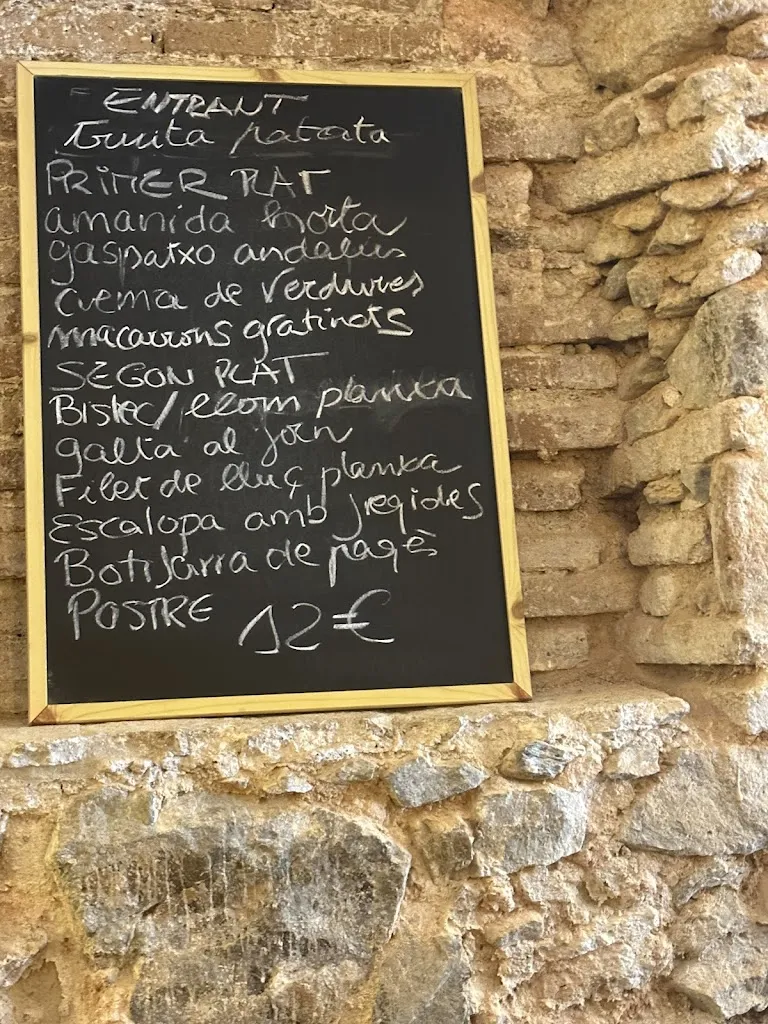 ENTRANT
truita patata
PRIMER PLAT
amanida horta
gaspatxo andalús
crema de verdures
macarrons gratinats
SEGON PLAT
Bistec/llom planxa
galta al forn
Filet de lluç planxa
Escalopa amb fregides
Botifarra de pagès
POSTRE 12€